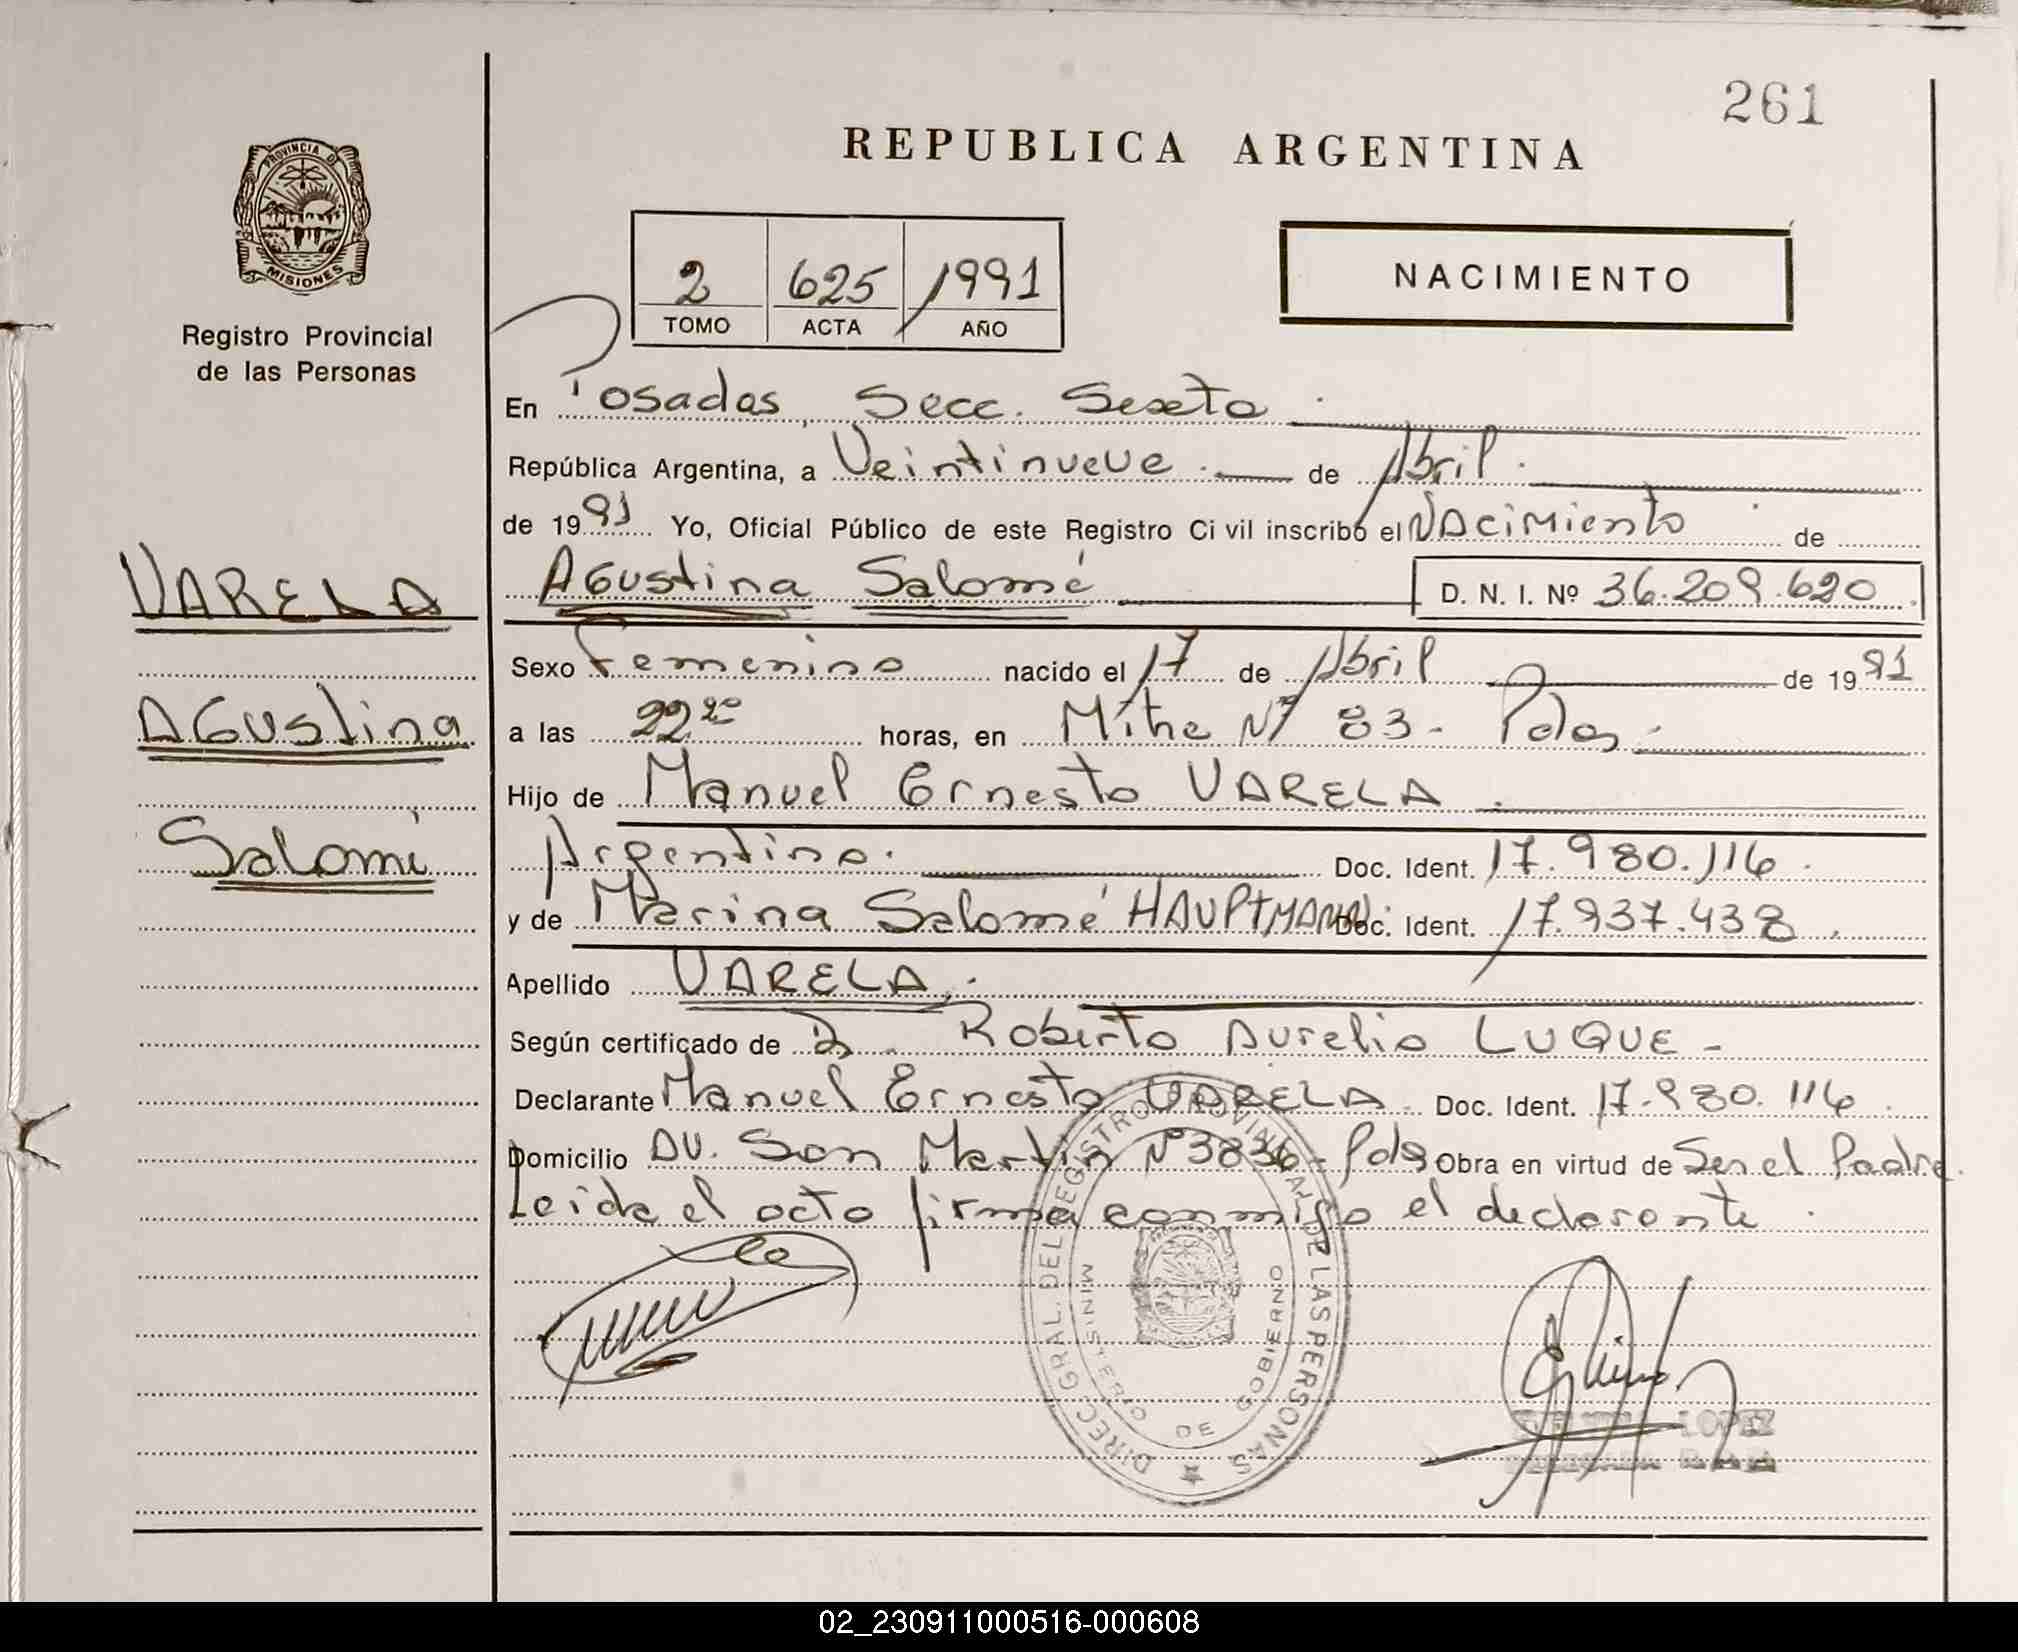 261
REPUBLICA ARGENTINA
PROVINCIA D
MISIONES
Registro Provincial
de las Personas
2 625 1991
TOMO ACTA AÑO
NACIMIENTO
En Posadas, Secc. Sexta.
República Argentina, a Veintinueve. de Abril.
de 1991 Yo, Oficial Público de este Registro Ci vil inscribo el Nacimiento de
VARELA
Agustina Salomé D. N. I. Nº 36.209.620
Sexo Femenino nacido el 17 de Abril de 1991
Agustina
a las 22 20 horas, en Mitre Nº 83- Pdas.
Hijo de Manuel Ernesto VARELA.
Salomé
Argentino. Doc. Ident. 17.980.116.
y de Marina Salomé HAUPTMANN. Doc. Ident. 17.937.438.
Apellido VARELA.
Según certificado de Dr. Roberto Aurelio LUQUE-
Declarante Manuel Ernesto VARELA Doc. Ident. 17.980.116.
Domicilio AV. San Martin Nº 3836- Pdas Obra en virtud de Ser el Padre.
Leida el acta firma conmigo el declarante.
DIREC. GRAL. DEL REGISTRO PROVINCIAL DE LAS PERSONAS
MINISTERIO DE GOBIERNO
LOPEZ
02_230911000516-000608